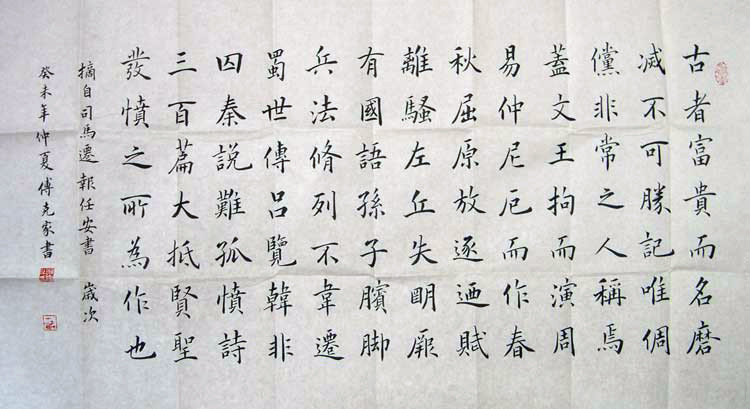 古者富貴而名磨
滅不可勝記唯倜
儻非常之人稱焉
蓋文王拘而演周
易仲尼厄而作春
秋屈原放逐迺賦
離騷左丘失明厥
有國語孫子臏脚
兵法脩列不韋遷
蜀世傳呂覽韓非
囚秦説難孤憤詩
三百篇大抵賢聖
發憤之所為作也
摘自司馬遷 報任安書 歲次
癸未年仲夏傅克家書